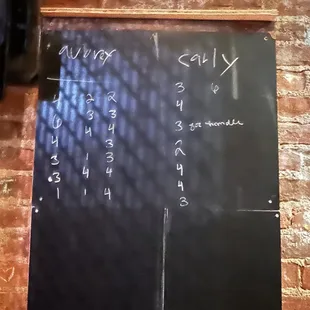 carly
4 2 2
6 3 3
4 4 4
3 3
3 1 3
3 4 4
1 1 4
3 6
4
3 for handle
2
4
4
3